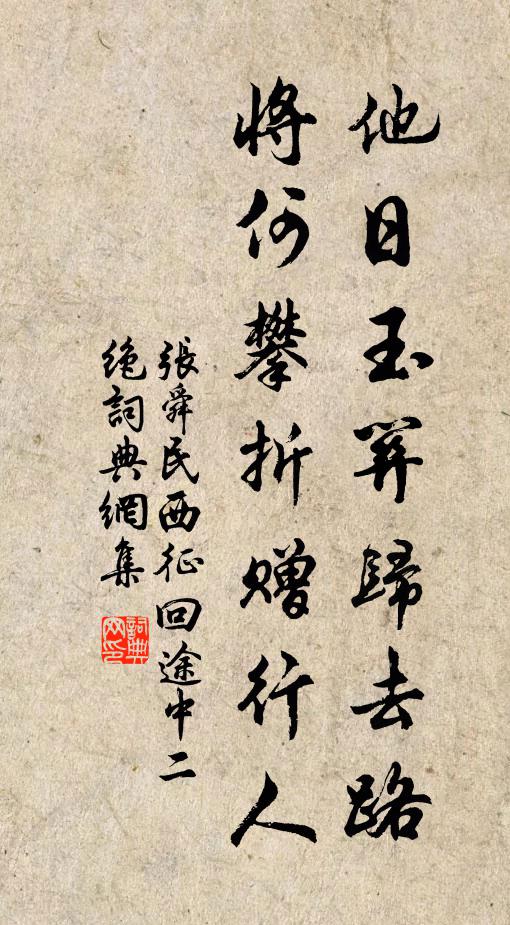 他日玉關歸去路
將何攀折贈行人
張舜民西征回途中二
絶詞典網集
詞典
网印